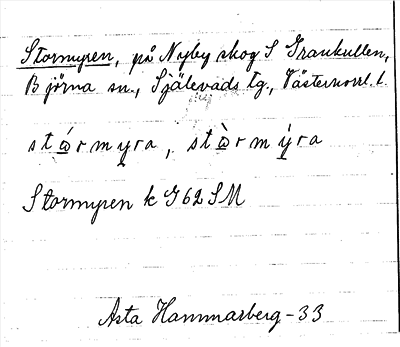 Stormyren, på Nyby skog S Grankullen,
Björna sn., Själevads tg., Västernorrl. l.
stώrmyra, stὼrmýra
Stormyren k G62 SM
Asta Hammarberg-33